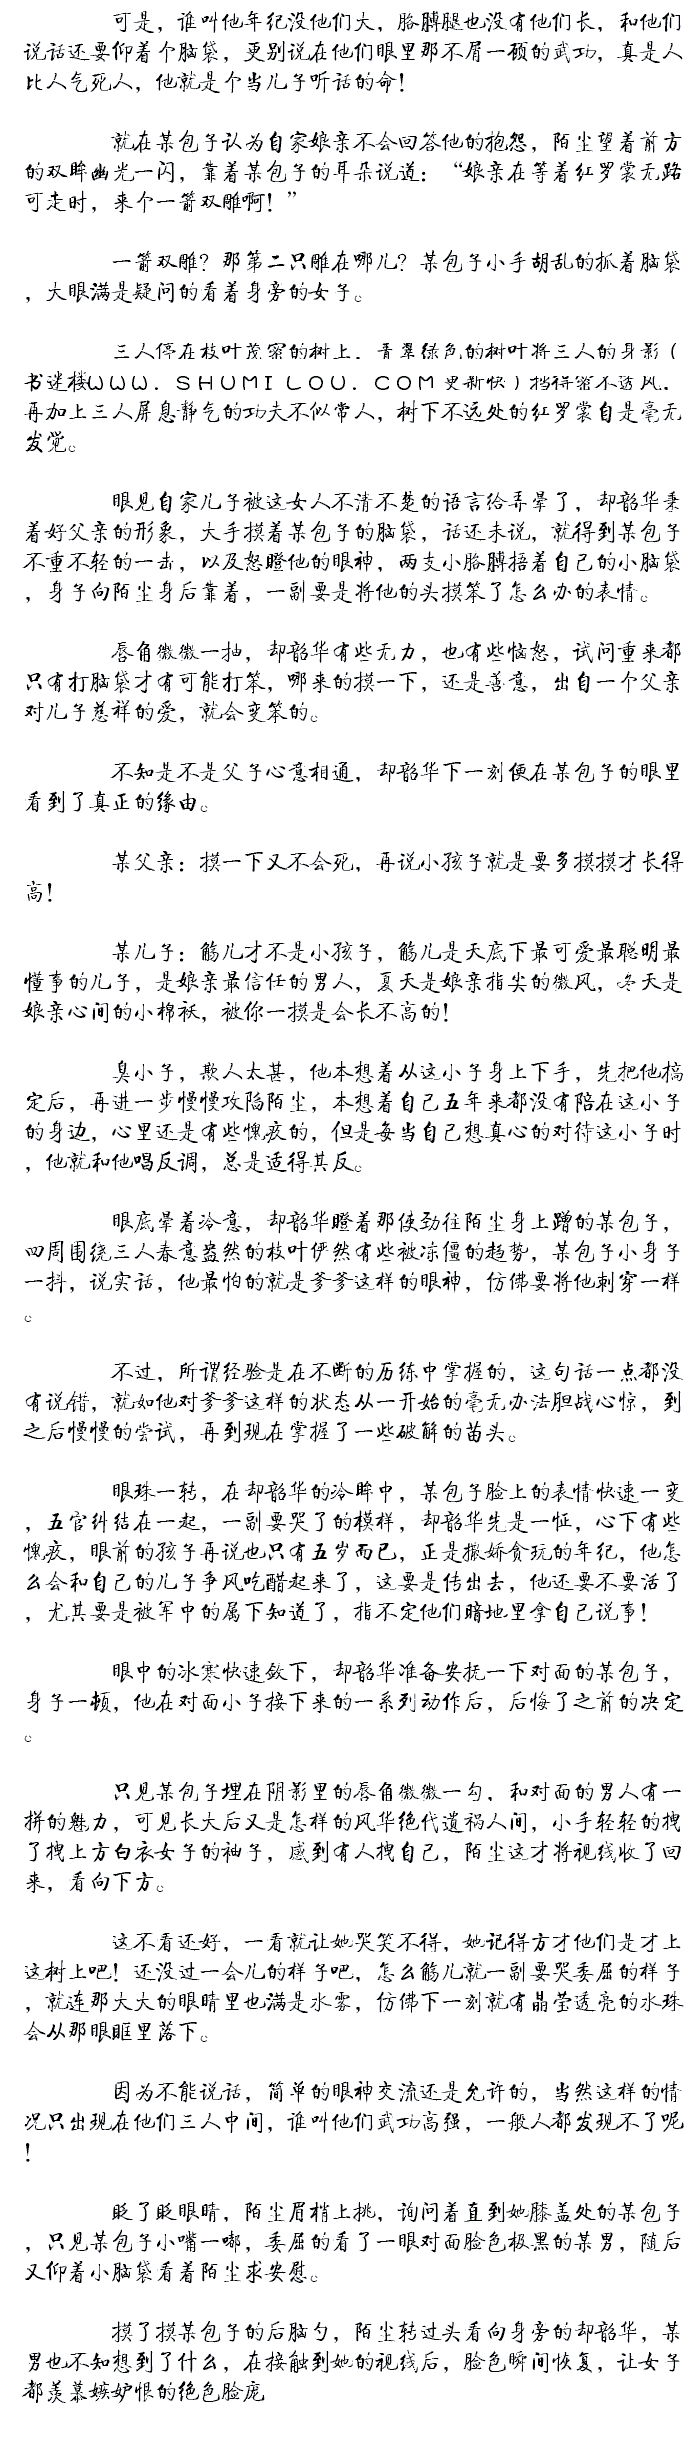 可是，谁叫他年纪没他们大，胳膊腿也没有他们长，和他们
说话还要仰着个脑袋，更别说在他们眼里那不屑一顾的武功，真是人
比人气死人，他就是个当儿子听话的命！
就在某包子认为自家娘亲不会回答他的抱怨，陌尘望着前方
的双眸幽光一闪，靠着某包子的耳朵说道：“娘亲在等着红罗裳无路
可走时，来个一箭双雕啊！”
一箭双雕？那第二只雕在哪儿？某包子小手胡乱的抓着脑袋
，大眼满是疑问的看着身旁的女子。
三人停在枝叶茂密的树上．青翠绿色的树叶将三人的身影（
书迷楼ＷＷＷ．ＳＨＵＭＩＬＯＵ．ＣＯＭ更新快）挡得密不透风．
再加上三人屏息静气的功夫不似常人，树下不远处的红罗裳自是毫无
发觉。
眼见自家儿子被这女人不清不楚的语言给弄晕了，却韶华秉
着好父亲的形象，大手摸着某包子的脑袋，话还未说，就得到某包子
不重不轻的一击，以及怒瞪他的眼神，两支小胳膊捂着自己的小脑袋
，身子向陌尘身后靠着，一副要是将他的头摸笨了怎么办的表情。
唇角微微一抽，却韶华有些无力，也有些恼怒，试问重来都
只有打脑袋才有可能打笨，哪来的摸一下，还是善意，出自一个父亲
对儿子慈祥的爱，就会变笨的。
不知是不是父子心意相通，却韶华下一刻便在某包子的眼里
看到了真正的缘由。
某父亲：摸一下又不会死，再说小孩子就是要多摸摸才长得
高！
某儿子：觞儿才不是小孩子，觞儿是天底下最可爱最聪明最
懂事的儿子，是娘亲最信任的男人，夏天是娘亲指尖的微风，冬天是
娘亲心间的小棉袄，被你一摸是会长不高的！
臭小子，欺人太甚，他本想着从这小子身上下手，先把他搞
定后，再进一步慢慢攻陷陌尘，本想着自己五年来都没有陪在这小子
的身边，心里还是有些愧疚的，但是每当自己想真心的对待这小子时
，他就和他唱反调，总是适得其反。
眼底晕着冷意，却韶华瞪着那使劲往陌尘身上蹭的某包子，
四周围绕三人春意盎然的枝叶俨然有些被冻僵的趋势，某包子小身子
一抖，说实话，他最怕的就是爹爹这样的眼神，仿佛要将他刺穿一样
。
不过，所谓经验是在不断的历练中掌握的，这句话一点都没
有说错，就如他对爹爹这样的状态从一开始的毫无办法胆战心惊，到
之后慢慢的尝试，再到现在掌握了一些破解的苗头。
眼珠一转，在却韶华的冷眸中，某包子脸上的表情快速一变
，五官纠结在一起，一副要哭了的模样，却韶华先是一怔，心下有些
愧疚，眼前的孩子再说也只有五岁而已，正是撒娇贪玩的年纪，他怎
么会和自己的儿子争风吃醋起来了，这要是传出去，他还要不要活了
，尤其要是被军中的属下知道了，指不定他们暗地里拿自己说事！
眼中的冰寒快速敛下，却韶华准备安抚一下对面的某包子，
身子一顿，他在对面小子接下来的一系列动作后，后悔了之前的决定
。
只见某包子埋在阴影里的唇角微微一勾，和对面的男人有一
拼的魅力，可见长大后又是怎样的风华绝代遗祸人间，小手轻轻的拽
了拽上方白衣女子的袖子，感到有人拽自己，陌尘这才将视线收了回
来，看向下方。
这不看还好，一看就让她哭笑不得，她记得方才他们是才上
这树上吧！还没过一会儿的样子吧，怎么觞儿就一副要哭委屈的样子
，就连那大大的眼睛里也满是水雾，仿佛下一刻就有晶莹透亮的水珠
会从那眼眶里落下。
因为不能说话，简单的眼神交流还是允许的，当然这样的情
况只出现在他们三人中间，谁叫他们武功高强，一般人都发现不了呢
！
眨了眨眼睛，陌尘眉梢上挑，询问着直到她膝盖处的某包子
，只见某包子小嘴一嘟，委屈的看了一眼对面脸色极黑的某男，随后
又仰着小脑袋看着陌尘求安慰。
摸了摸某包子的后脑勺，陌尘转过头看向身旁的却韶华，某
男也不知想到了什么，在接触到她的视线后，脸色瞬间恢复，让女子
都羡慕嫉妒恨的绝色脸庞